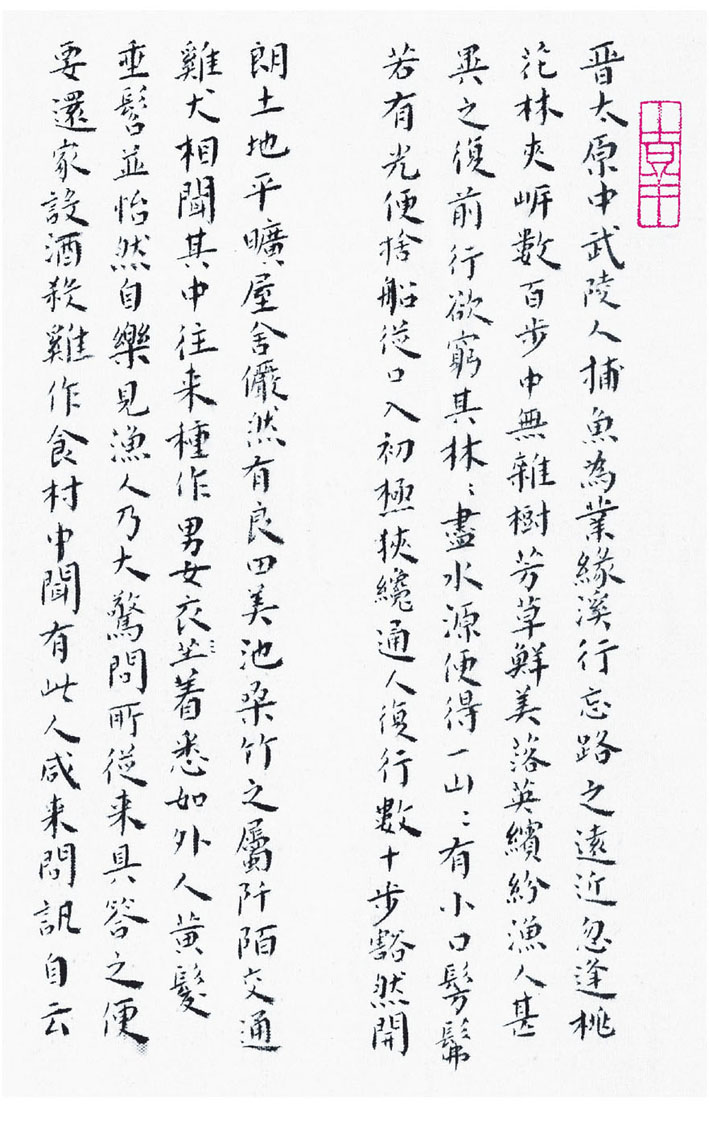 晋太原中武陵人捕魚為業緣溪行忘路之遠近忽逢桃
花林夾岍數百步中無雜樹芳草鮮美落英繽紛漁人甚
異之復前行欲窮其林〻盡水源便得一山〻有小口髣髴
若有光便捨船從口入初極狹纔通人復行數十步豁然開
朗土地平曠屋舍儼然有良田美池桑竹之屬阡陌交通
雞犬相聞其中往来種作男女衣並着悉如外人黄髮
垂髫並怡然自樂見漁人乃大驚問所從来具答之便
要還家設酒殺雞作食村中聞有此人咸来問訊自云